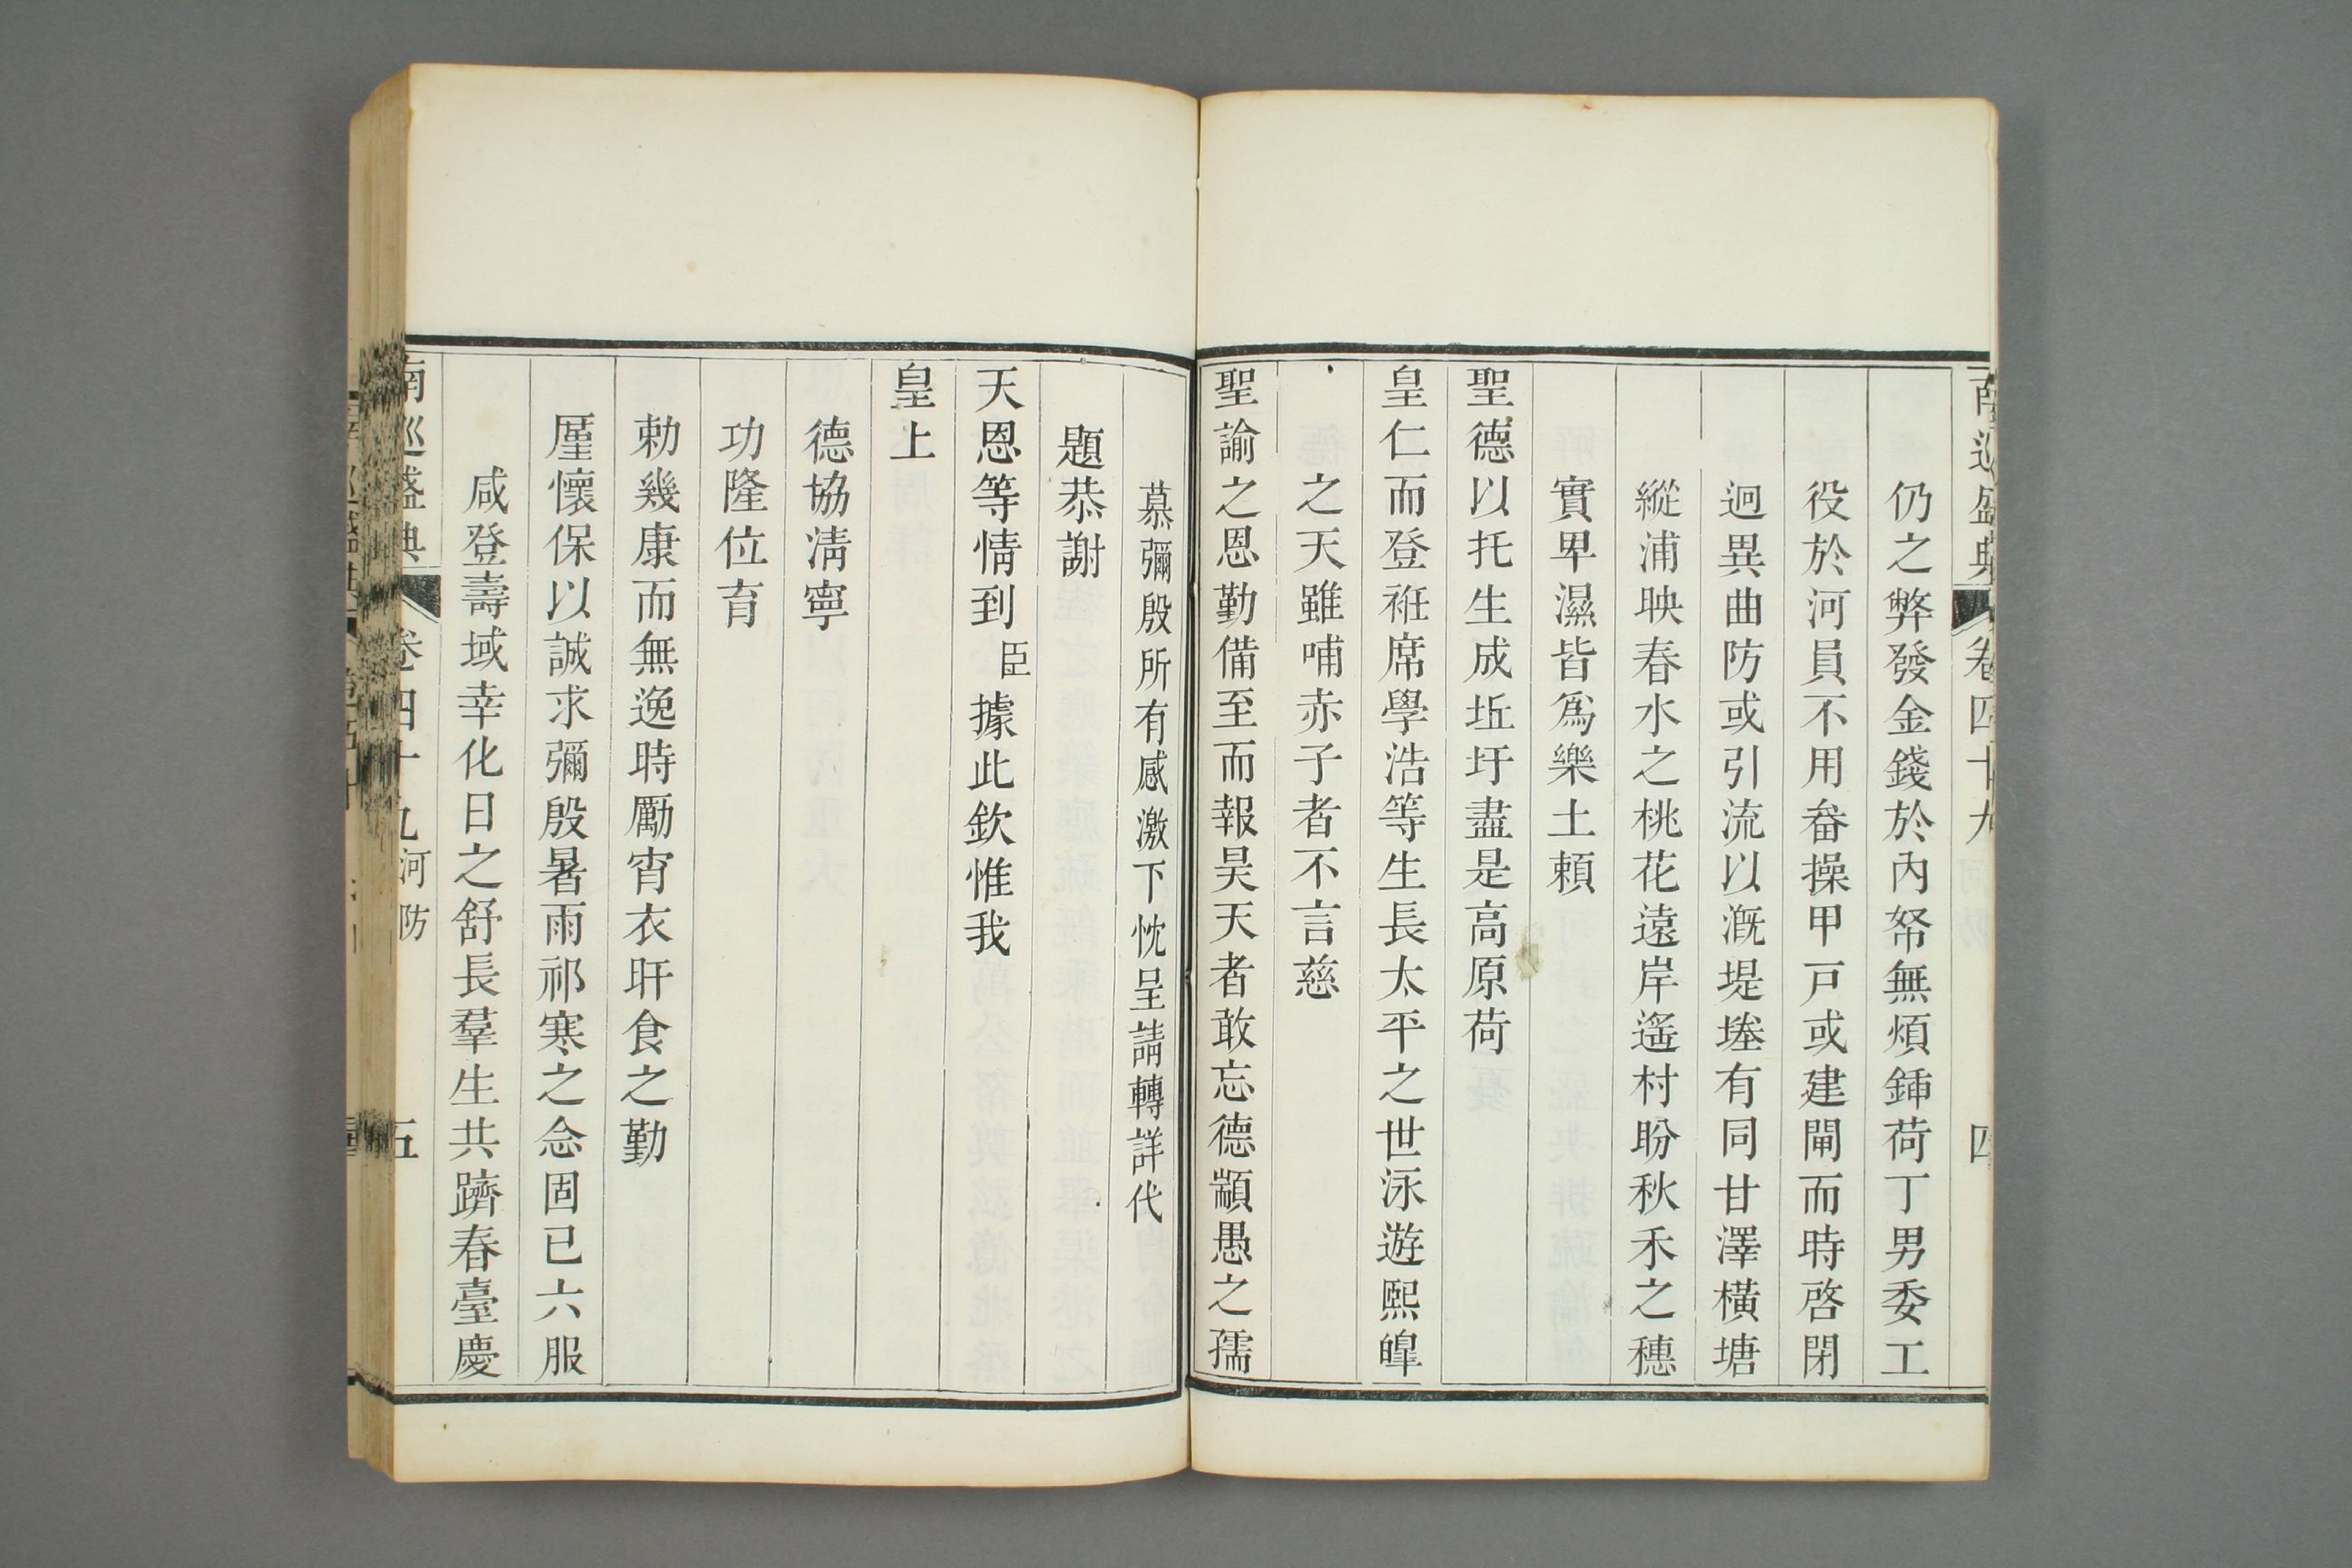 南巡盛典 卷四十九 四
仍之弊發金錢於內帑無煩鍤荷丁男委工
役於河員不用畚操甲戸或建閘而時啓閉
迥異曲防或引流以漑堤塍有同甘澤橫塘
縱浦映春水之桃花遠岸遙村盼秋禾之穗
實卑濕皆爲樂土頼
聖德以托生成坵圩盡是高原荷
皇仁而登袵席學浩等生長太平之世泳遊熙皥
之天雖哺赤子者不言慈
聖諭之恩勤備至而報昊天者敢忘德顓愚之孺
慕彌殷所有感激下忱呈請轉詳代
題恭謝
天恩等情到臣據此欽惟我
皇上
德協淸寧
功隆位育
勅幾康而無逸時勵宵衣旰食之勤
厪懷保以誠求彌殷暑雨祁寒之念固已六服
咸登壽域幸化日之舒長羣生共躋春臺慶
南巡盛典 卷四十九 河防 五